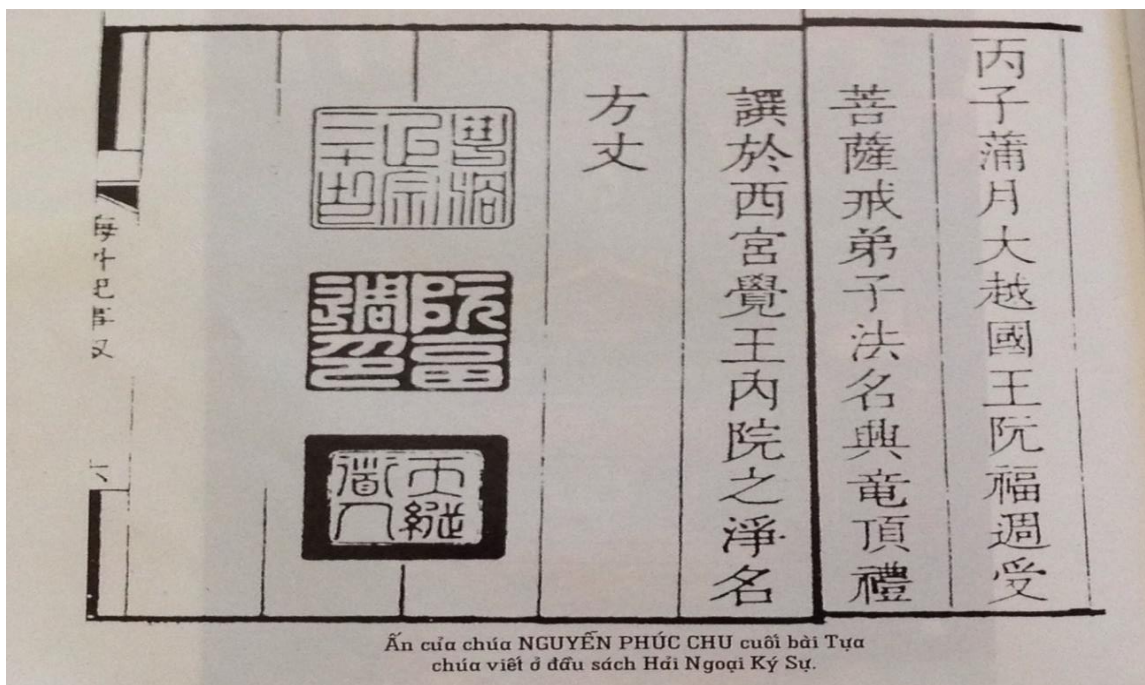 丙子蒲月大越國王阮福週受
菩薩戒弟子法名興竜頂禮
譔於西宮覺王內院之淨名
方丈
正宗
三十世
天縱
道人
海外
Ấn của chúa NGUYỄN PHÚC CHU cuối bài Tựa
chúa viết ở đầu sách Hải Ngoại Ký Sự.